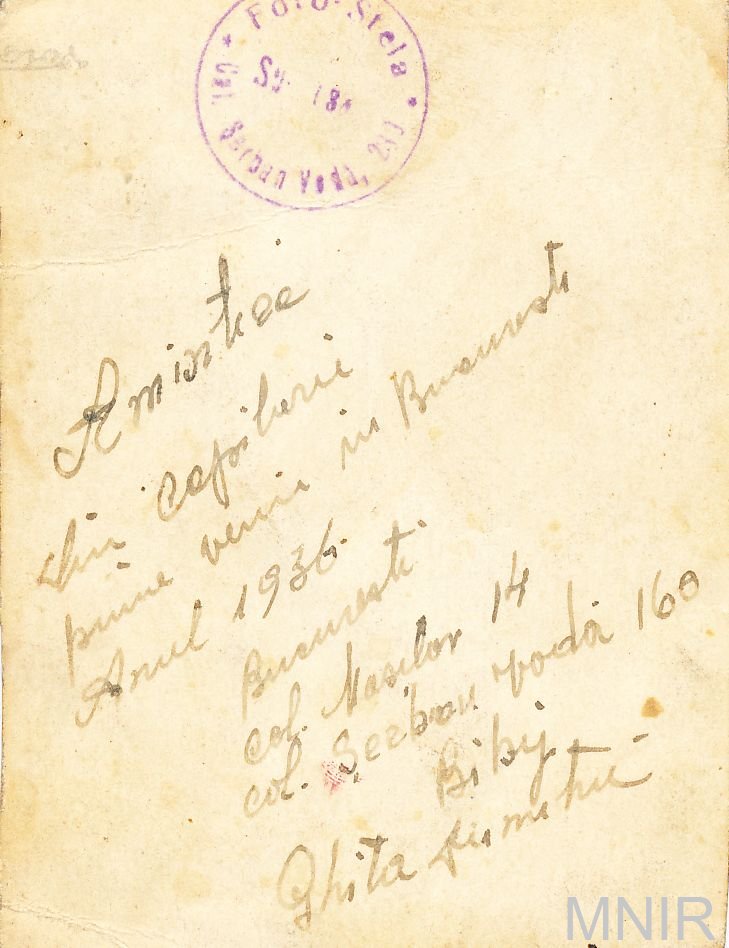 * Foto-Stela *
Cal. Șerban Vodă, 211
Amintice
Din
prima venire in Bucuresti
Anul 1936.
Bucuresti
cal. Mosilor 14
cal. Șerban Vodă 160
Biby
Ghita Dumitru
MNIR